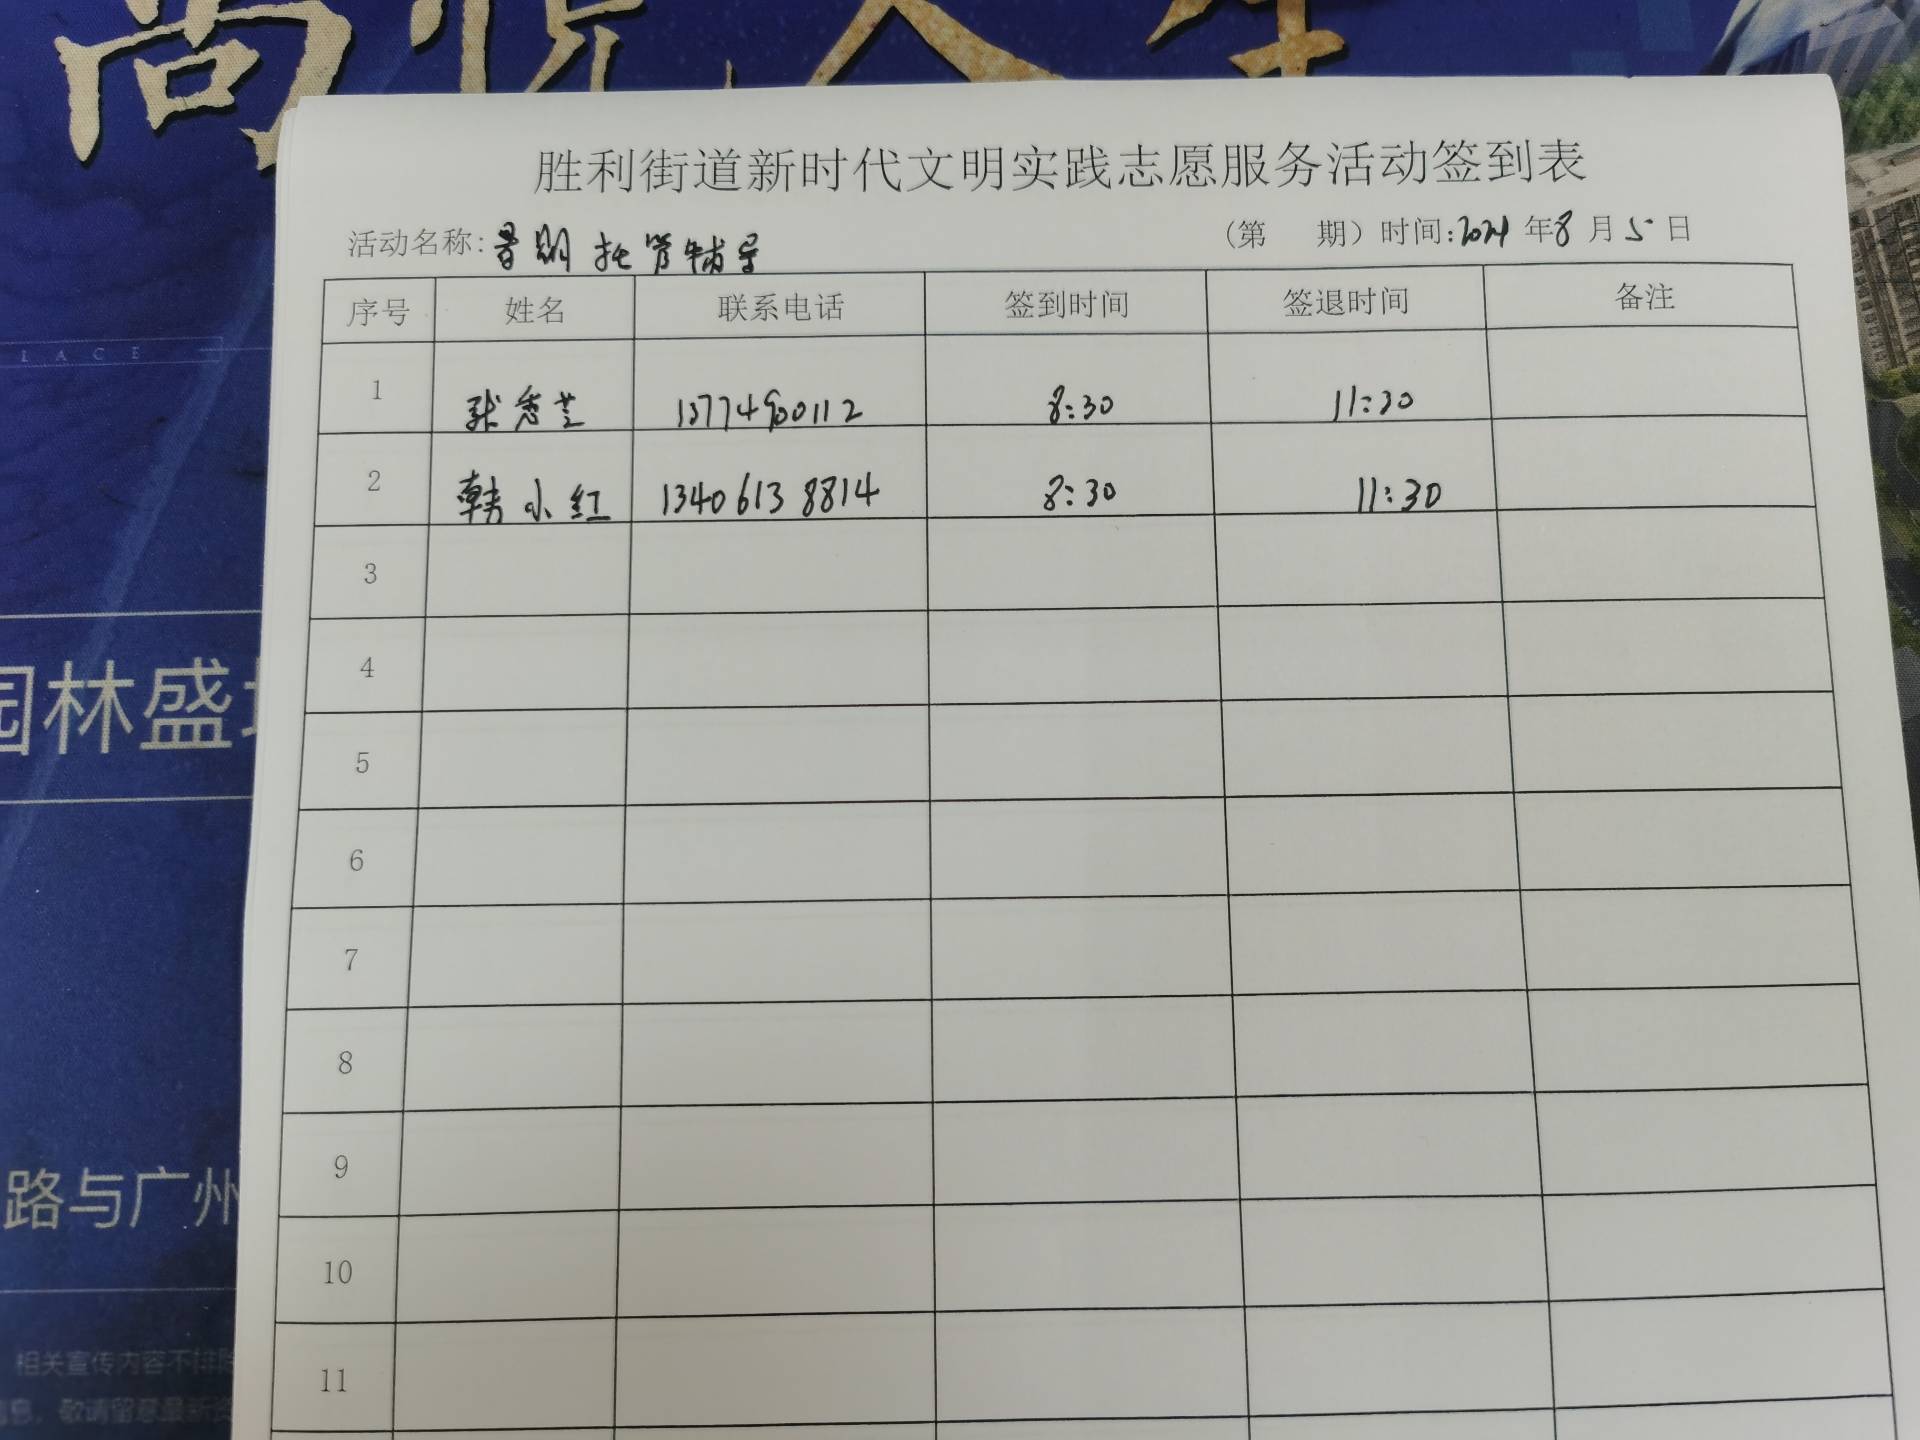 尚悦人生
LACE
园林盛
路与广州
相关宣传内容不排除
信息，敬请留意最新资
胜利街道新时代文明实践志愿服务活动签到表
活动名称：暑期托管辅导 （第 期）时间：2021年8月5日
序号 姓名 联系电话 签到时间 签退时间 备注
1 张秀芝 13774900112 8:30 11:30
2 韩小红 13406138814 8:30 11:30
3
4
5
6
7
8
9
10
11